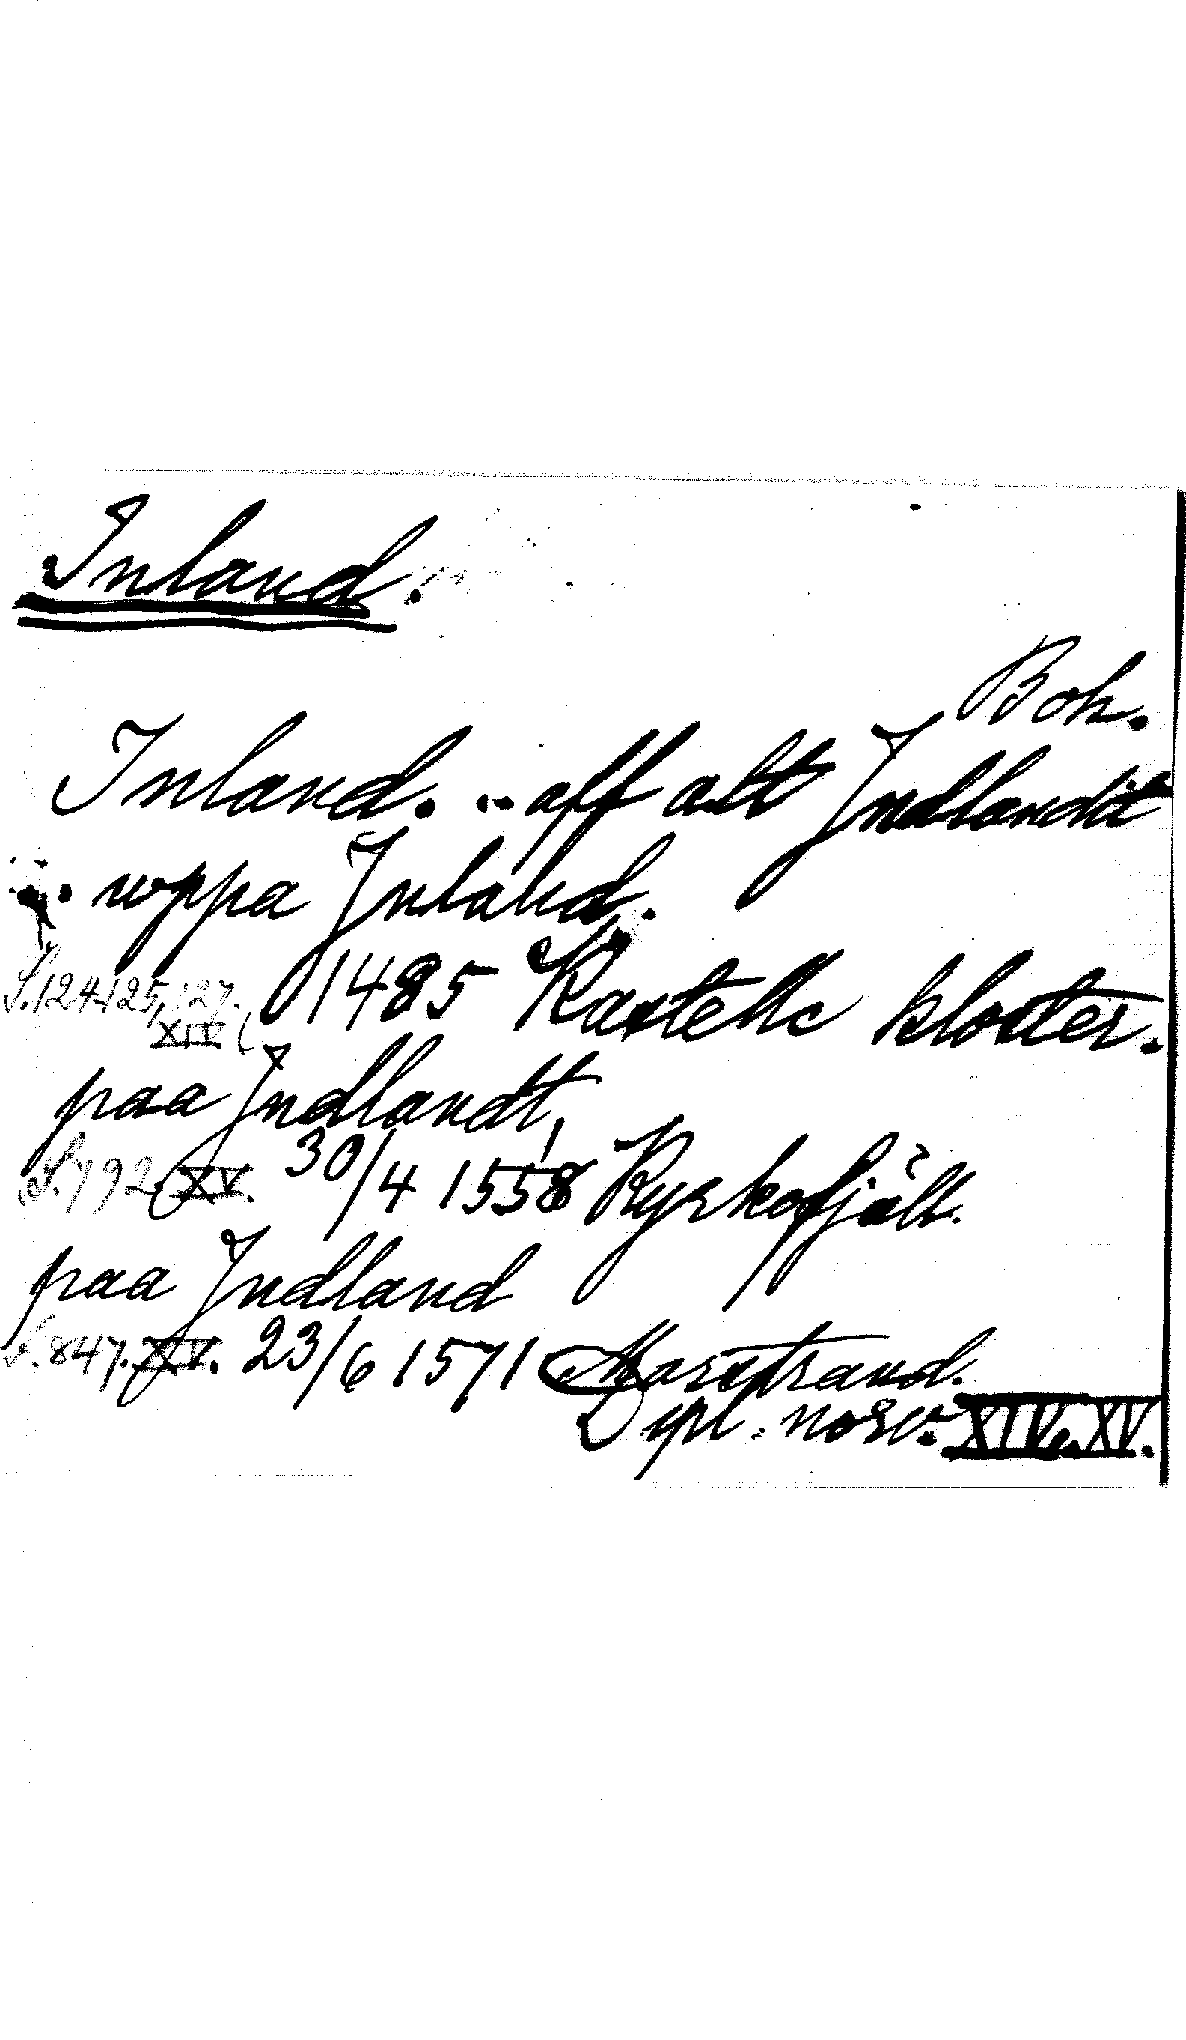 Inland.
Boh.
Inland. .. aff alt Jndlandit
.. uppa Jnland.
S. 124, 125, 127. XIV ( 1485 Kastelle kloster.
paa Jndlandt,
S. 792 XV. 30/4 1558 Kyrkofjäll.
paa Jndland
S. 847. XV. 23/6 1571 Marstrand.
Dipl. norv. XIV. XV.